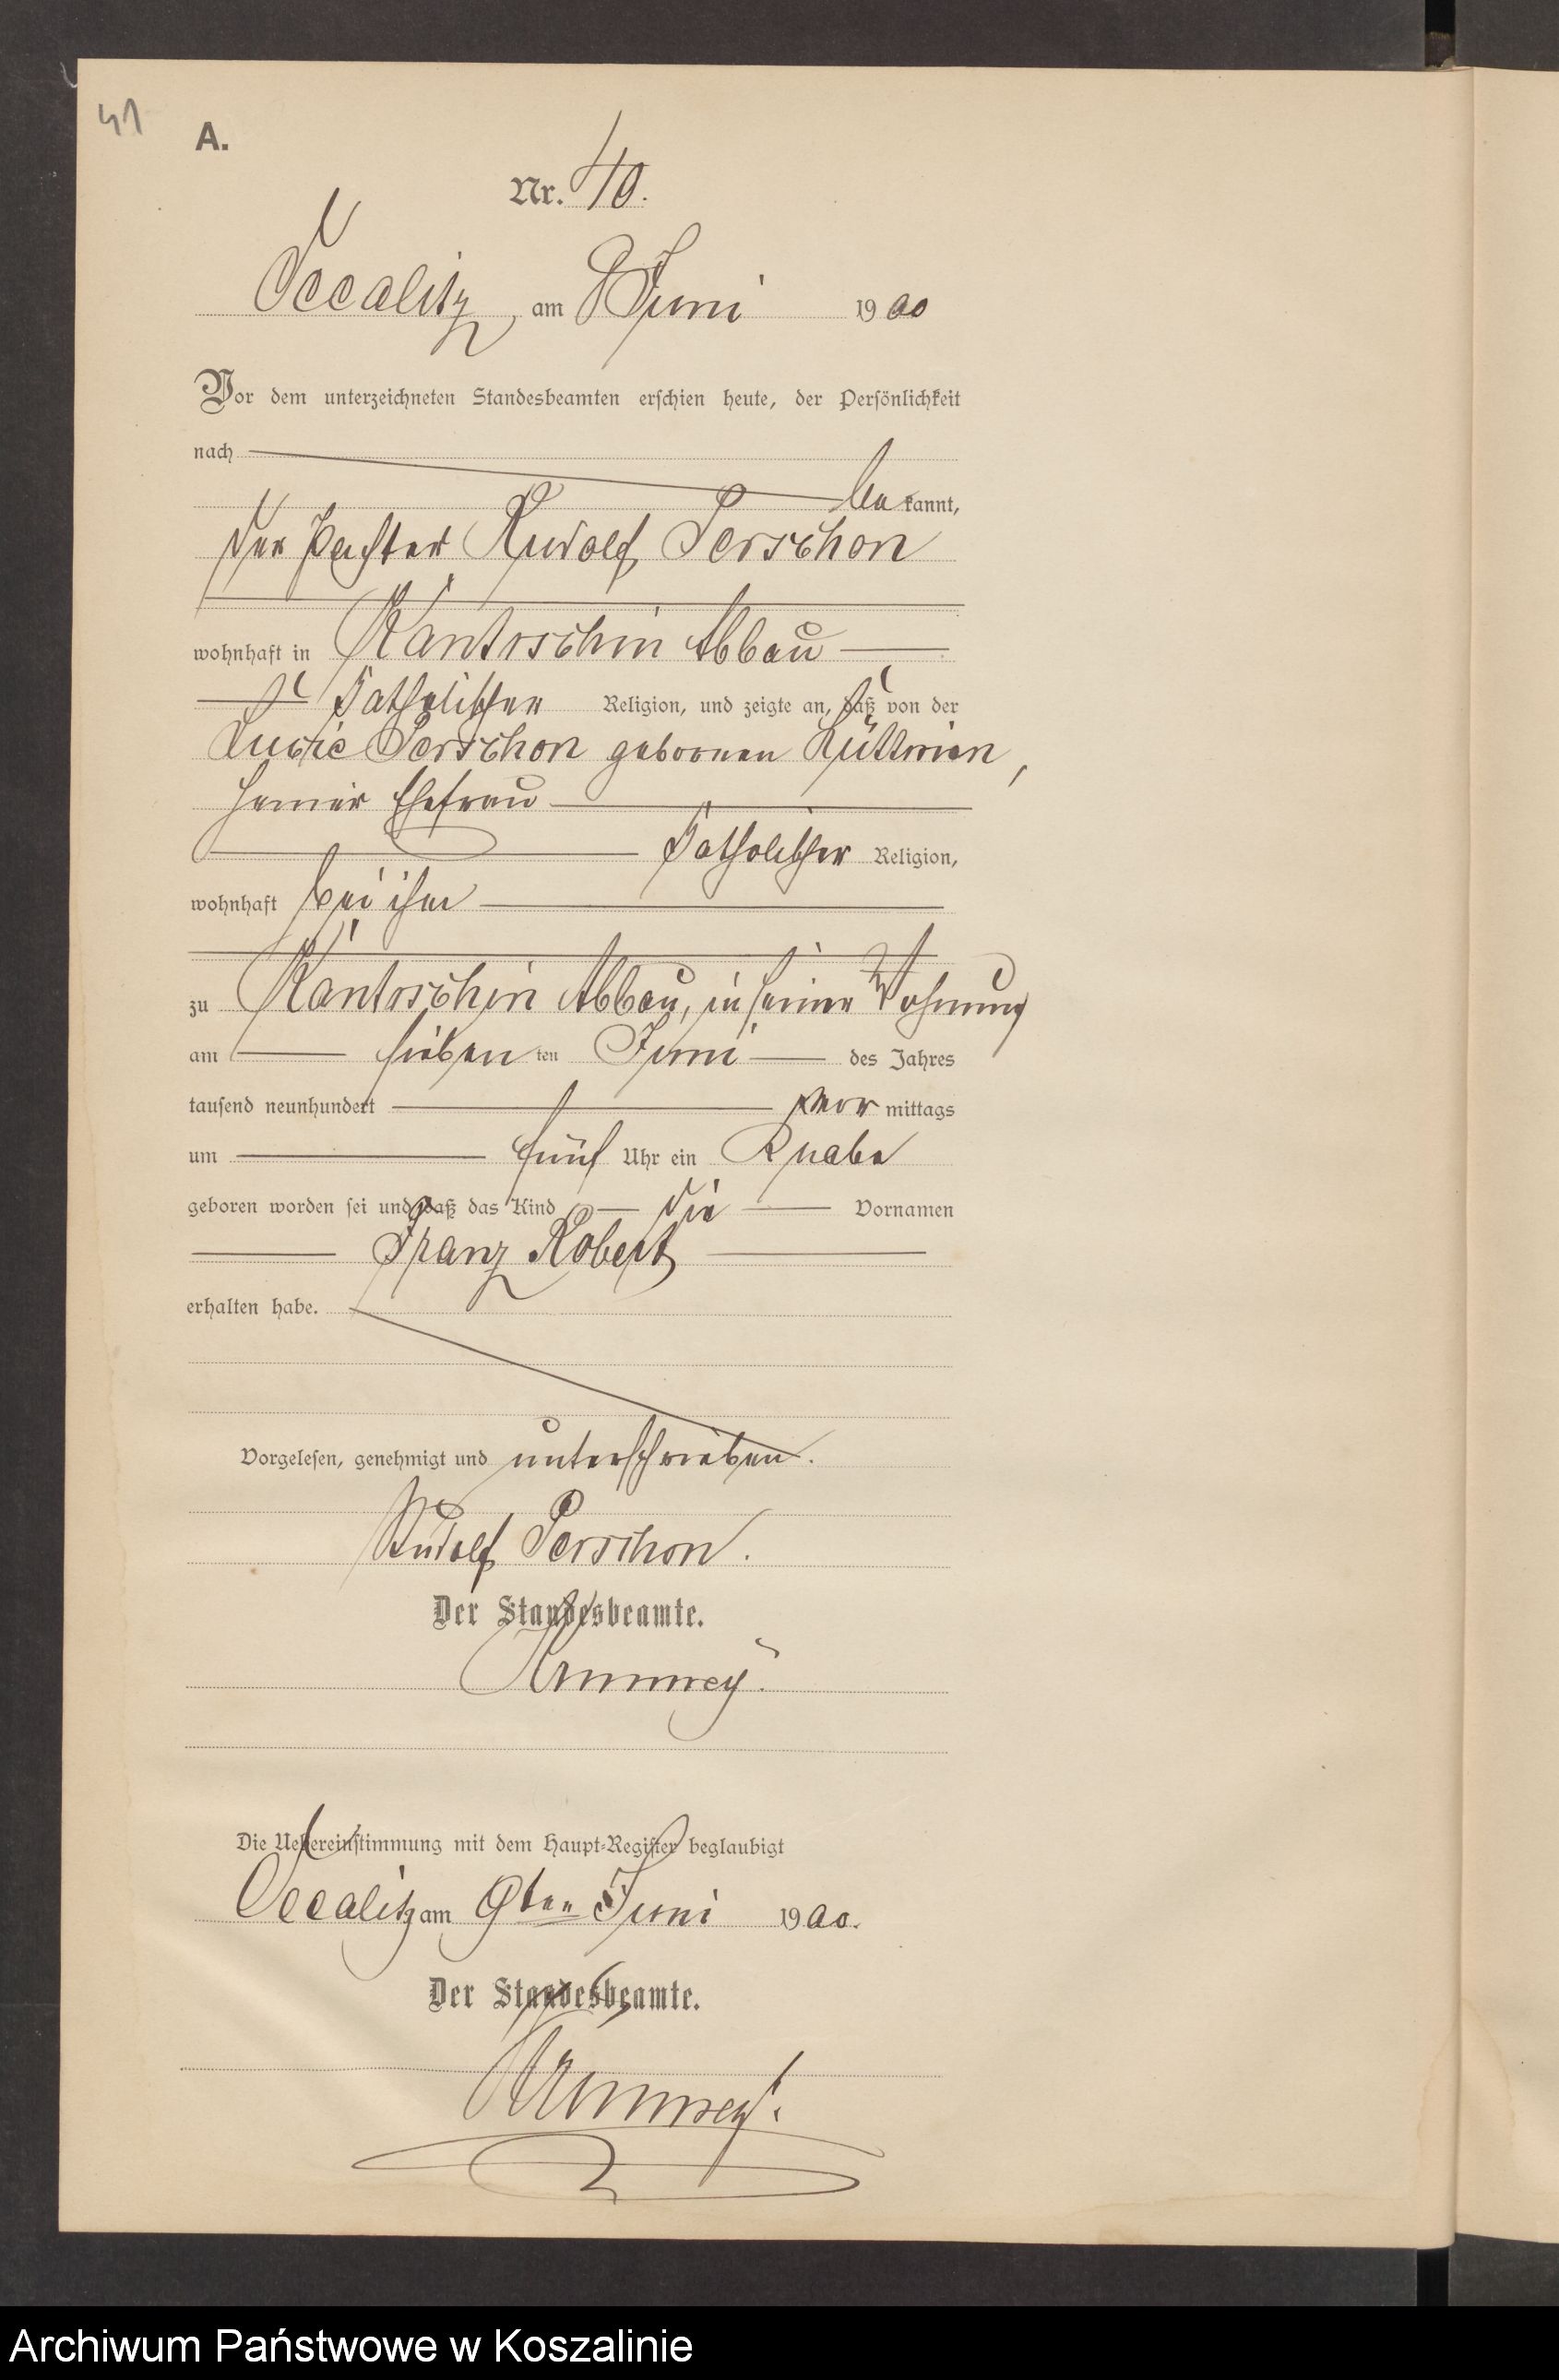 41
A.
Nr. 40.
Occalitz, am 8 Juni 1900
Vor dem unterzeichneten Standesbeamten erschien heute, der Persönlichkeit
nach
be kannt,
der Pächter Rudolf Perschon
wohnhaft in Kantrschin Abbau
katholischer Religion, und zeigte an, daß von der
Lucie Perschon geborenen
seiner Ehefrau
katholischer Religion,
wohnhaft bei ihm
zu Kantrschin Abbau, in seiner Wohnung
am sieben ten Juni des Jahres
tausend neunhundert vor mittags
um fünf Uhr ein Knabe
geboren worden sei und daß das Kind die Vornamen
Franz Robert
erhalten habe.
Vorgelesen, genehmigt und unterschrieben.
Rudolf Perschon.
Der Standesbeamte.
Die Uebereinstimmung mit dem Haupt-Register beglaubigt
Occalitz am 9ten Juni 1900.
Der Standesbeamte.
Archiwum Państwowe w Koszalinie